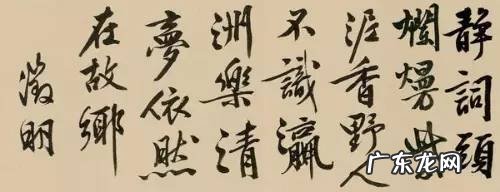 静詞頭
爛熳紫
泥香野人
不識瀛
洲樂清
夢依然
在故鄉
徵明
广东龙网